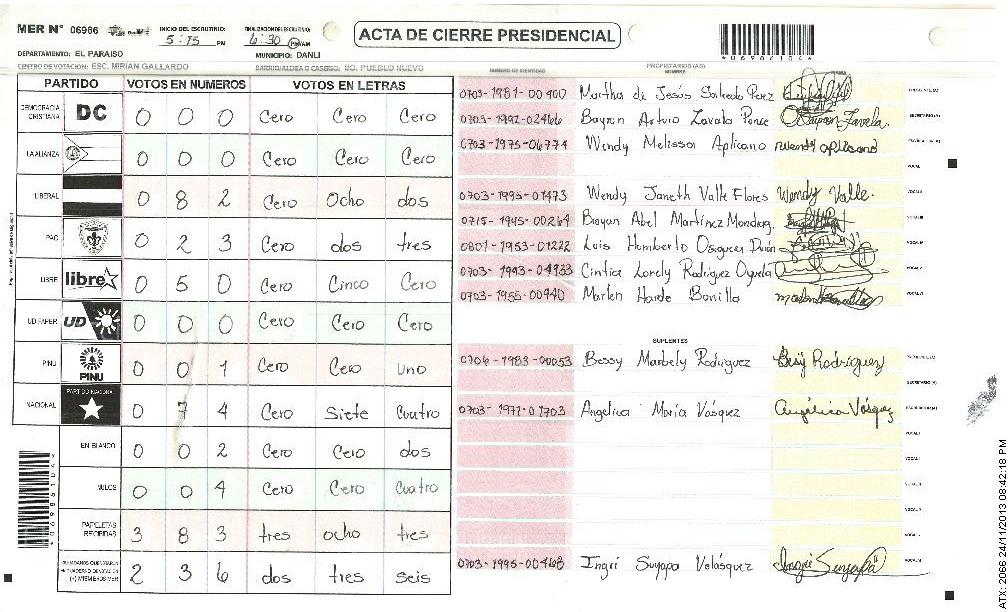 MER N° 06986
INICIO DEL ESCRUTINIO:
5:15 PM
FINALIZACION DEL ESCRUTINIO:
6:30 PM/AM
ACTA DE CIERRE PRESIDENCIAL
*06986104*
DEPARTAMENTO: EL PARAISO
MUNICIPIO: DANLI
CENTRO DE VOTACION: ESC. MIRIAN GALLARDO
BARRIO/ALDEA O CASERIO: BO. PUEBLO NUEVO
PARTIDO VOTOS EN NUMEROS VOTOS EN LETRAS
DEMOCRACIA CRISTIANA DC 0 0 0 Cero Cero Cero
LA ALIANZA 0 0 0 Cero Cero Cero
LIBERAL 0 8 2 Cero Ocho dos
PAC 0 2 3 Cero dos tres
LIBRE libre 0 5 0 Cero Cinco Cero
UD FAPER UD 0 0 0 Cero Cero Cero
PINU PINU 0 0 1 Cero Cero uno
NACIONAL PARTIDO NACIONAL 0 7 4 Cero Siete Cuatro
EN BLANCO 0 0 2 Cero Cero dos
NULOS 0 0 4 Cero Cero Cuatro
PAPELETAS RECIBIDAS 3 8 3 tres ocho tres
2 3 6 dos tres seis
NUMERO DE IDENTIDAD
PROPIETARIOS (AS)
NOMBRE
FIRMA
0703-1981-00900 Martha de Jesús Salcedo Perez
0703-1992-02466 Bayron Arturo Zavala Ponce
0703-1975-06774 Wendy Melissa Aplicano
0703-1995-01473 Wendy Janeth Valle Flores Wendy Valle
0715-1945-00264 Brayan Abel Martínez
0801-1953-01222 Luis Humberto Oseguera
0703-1993-04933 Cintica Lorely Rodriguez Oyuela
0703-1955-00940 Marlen Haide Bonilla
SUPLENTES
0706-1983-00053 Bessy Marbely Rodriguez Besy Rodríguez
0703-1971-01703 Angelica María Vásquez Angélica Vásquez
0703-1995-00468 Ingri Suyapa Velásquez
*06986104*
ATX: 2066 24/11/2013 08:42:18 PM